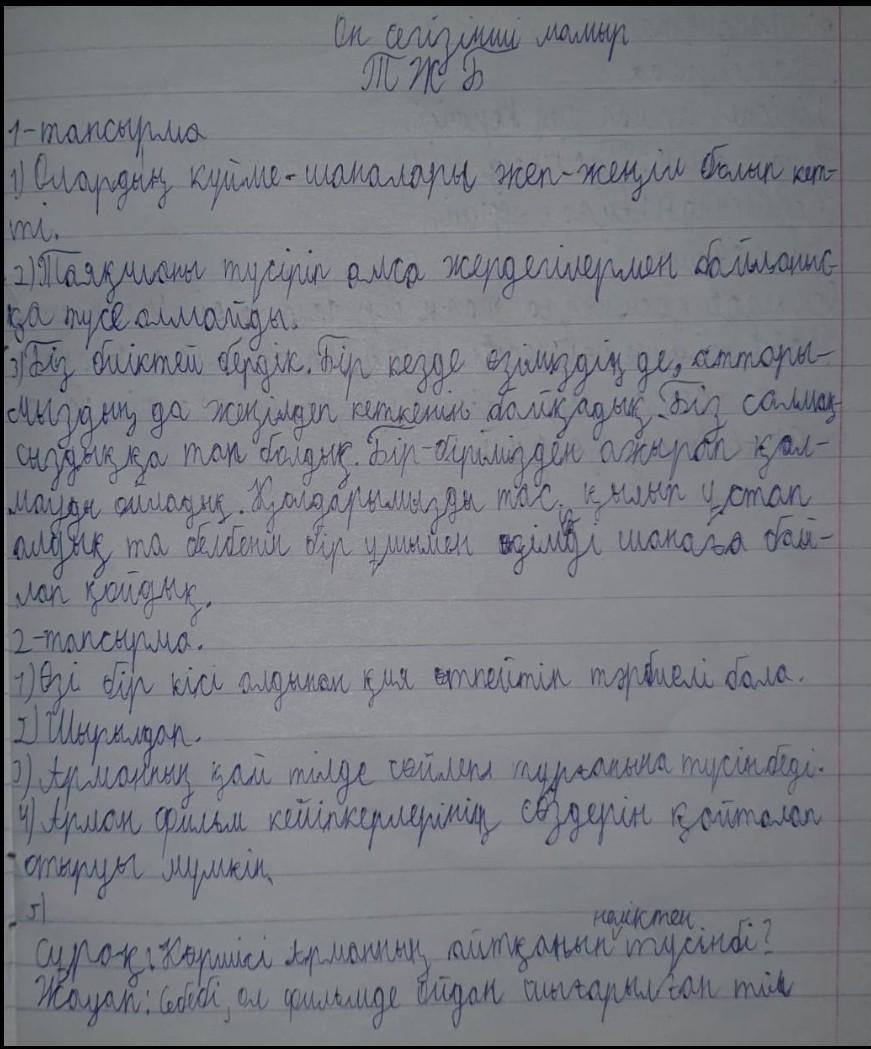 Он сегізінші мамыр
ТЖБ
1-тапсырма
1) Олардың күйме-шаналары жеп-жеңіл болып кет-
ті.
2) Таяқшаны түсіріп алса жердегілермен байланыс-
қа түсе алмайды.
3) Біз биіктей бердік. Бір кезде өзіміздің де, аттары-
мыздың да жеңілдеп кеткенін байқадық. Біз салмақ-
сыздыққа тап болдық. Бір-бірімізден ажырап қал-
мауды ойладық. Қолдарымызды тас қылып ұстап
алдық та белбенің бір ұшымен өзімізді шанаға бай-
лап қойдық.
2-тапсырма.
1) Өзі бір кісі алдынан қия өтпейтін тәрбиелі бала.
2) Шырылдап.
3) Арманның қай тілде сөйлеп тұрғанына түсінбеді.
4) Арман фильм кейіпкерлерінің сөздерін қайталап
отыруы мүмкін.
5)
неліктен
Сұрақ: Көршісі Арманның айтқанын түсінбі?
Жауап: Себебі, ол фильмде ойдан шығарылған тіл